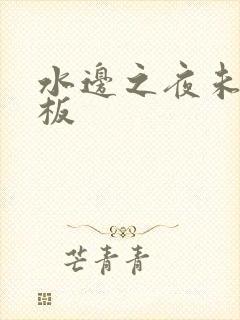 水邊之夜未
板
芒青青